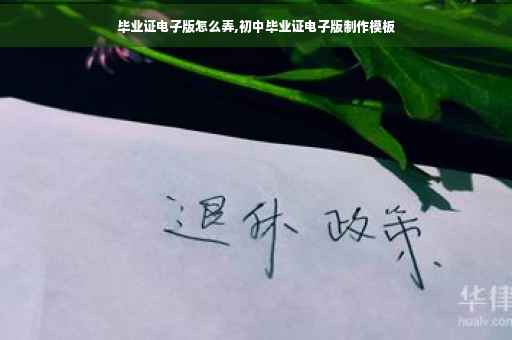 毕业证电子版怎么弄,初中毕业证电子版制作模板
退休 政策
华律
hualv.com